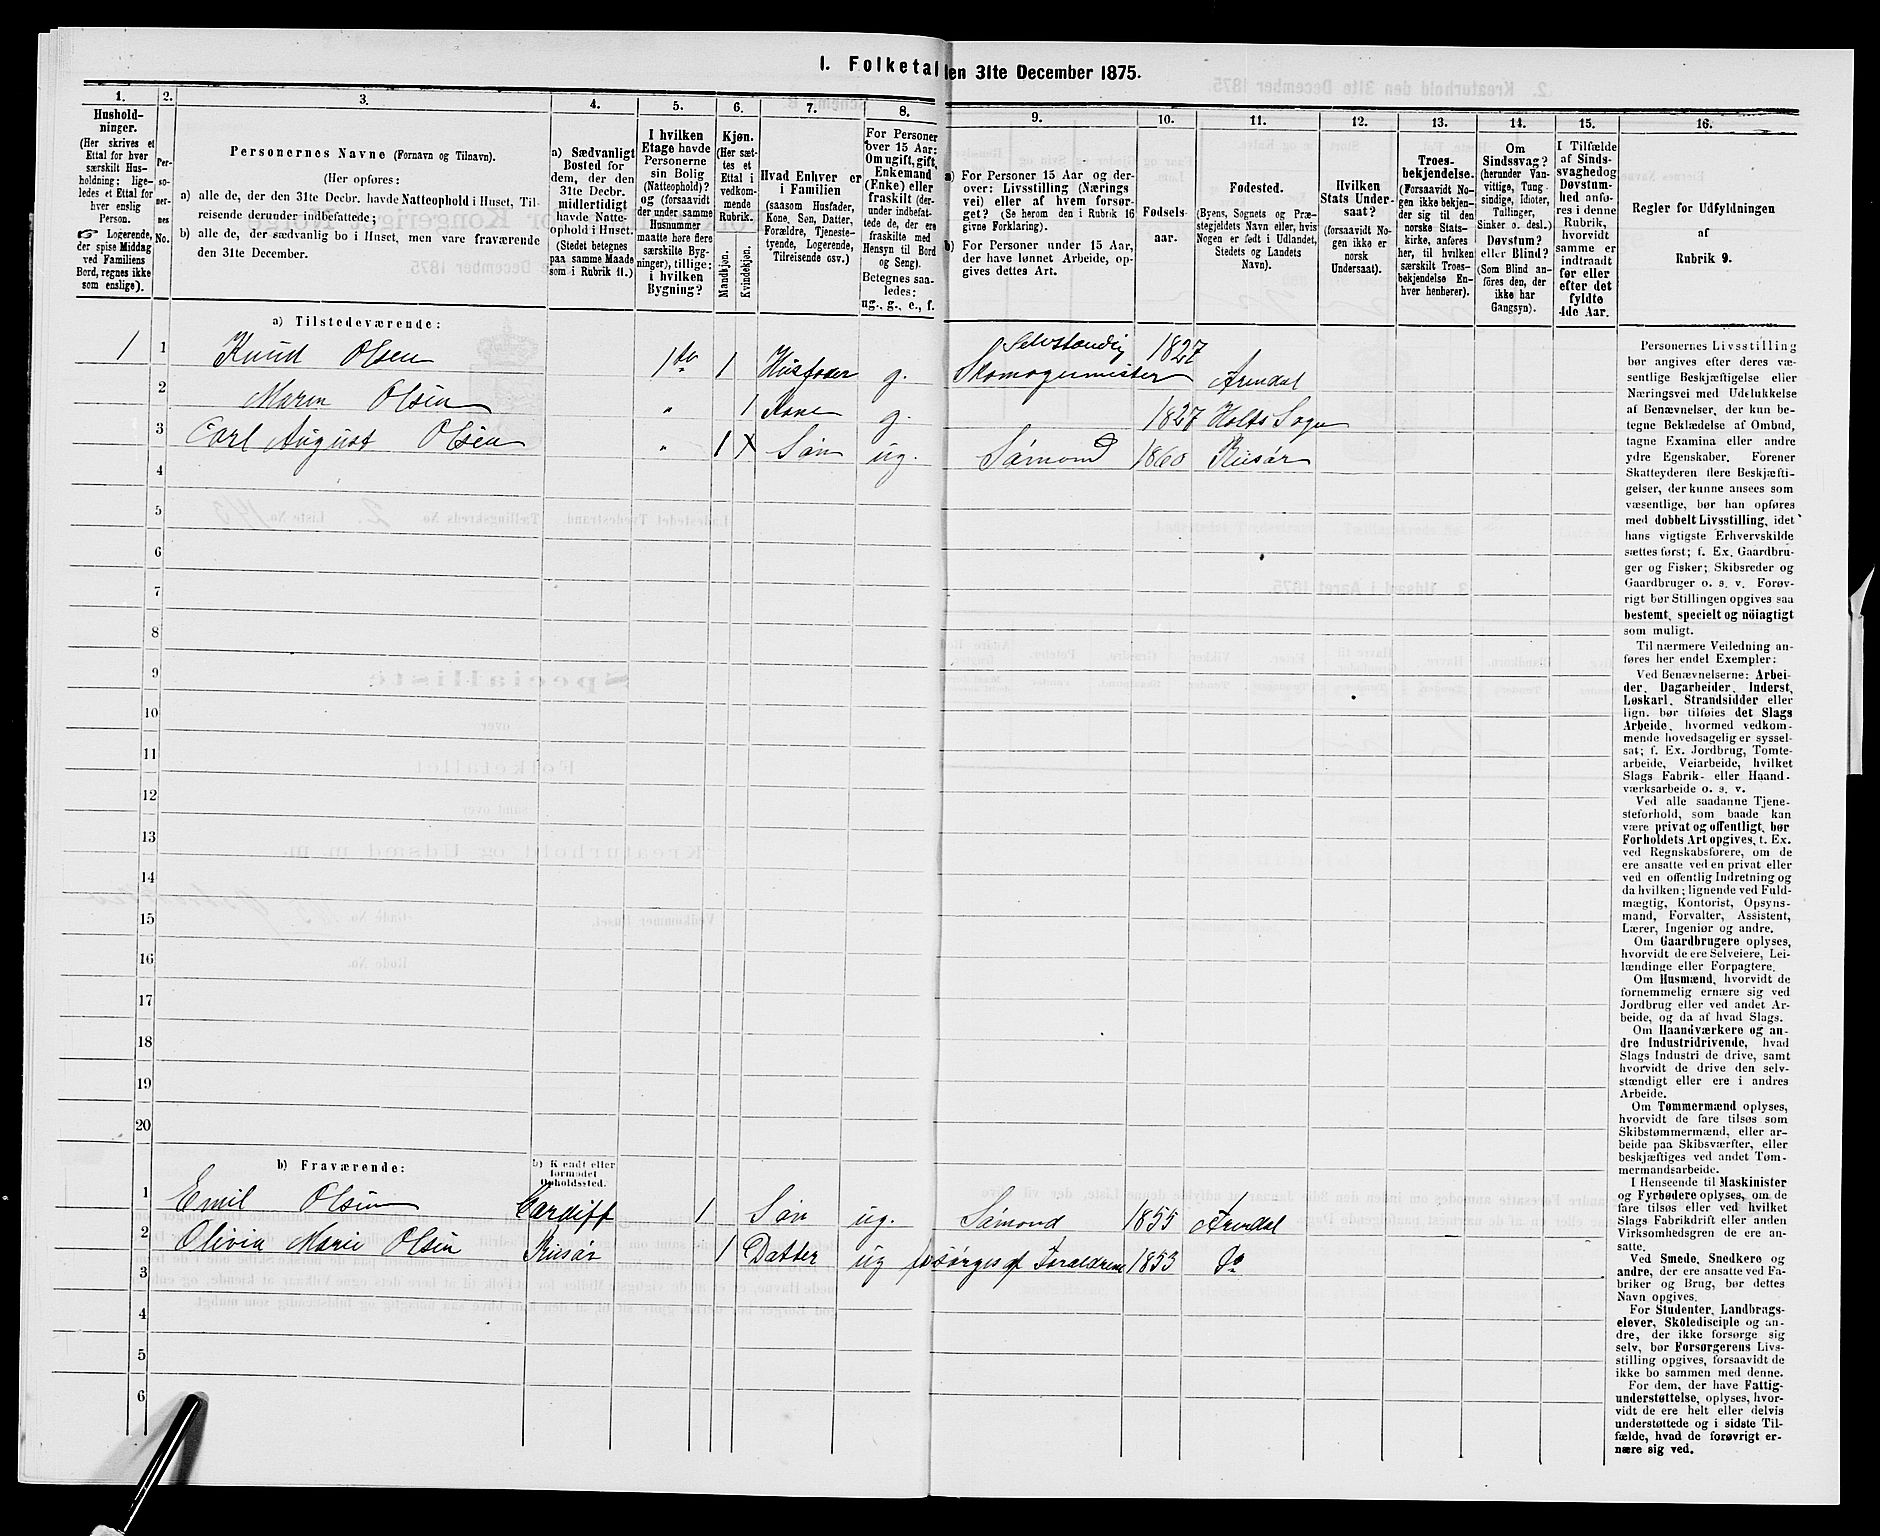 1. Folketal den 31te December 1875.
1.
2.
3.
4.
5.
6.
7.
8.
9.
10.
11.
12.
13.
14.
15.
16.
Hushold-
ninger.
(Her skrives et
Ettal for hver
særskilt Hus-
holdning; lige-
ledes et Ettal for
hver enslig
Person.
☞ Logerende,
der spise Middag
ved Familiens
Bord, regnes ikke
som enslige).
Per-
so-
ner-
nes
No.
Personernes Navne (Fornavn og Tilnavn).
(Her opføres:
a) alle de, der den 31te Decbr. havde Natteophold i Huset, Til-
reisende derunder indbefattede;
b) alle de, der sædvanlig bo i Huset, men vare fraværende
den 31te December.
a) Sædvanligt
Bosted for
dem, der den
31te Decbr.
midlertidigt
havde Natte-
ophold i Huset.
(Stedet betegnes
paa samme Maade
som i Rubrik 11.)
I hvilken
Etage havde
Personerne
sin Bolig
(Natteophold)?
og (forsaavidt
der under samme
Husnummer
maatte høre flere
særskilte Byg-
ninger), tillige:
i hvilken
Bygning?
Kjøn.
(Her sæt-
tes et
Ettal i
vedkom-
mende
Rubrik.
Mandkjøn.
Kvindekjøn.
Hvad Enhver er
i Familien
(saasom Husfader,
Kone, Søn, Datter,
Forældre, Tjeneste-
tyende, Logerende,
Tilreisende osv.)
For Personer
over 15 Aar:
Om ugift, gift,
Enkemand
(Enke) eller
fraskilt (der-
under indbefat-
tede de, der ere
fraskilte med
Hensyn til Bord
og Seng).
Betegnes saa-
ledes:
ug., g., e., f.
a) For Personer 15 Aar og der-
over: Livsstilling (Nærings
vei) eller af hvem forsør-
get? (Se herom den i Rubrik 16
givne Forklaring).
b) For Personer under 15 Aar,
der have lønnet Arbeide, op-
gives dettes Art.
Fødsels-
aar.
Fødested.
(Byens, Sognets og Præ-
stegjeldets Navn eller, hvis
Nogen er født i Udlandet,
Stedets og Landets
Navn).
Hvilken
Stats Under-
saat?
(forsaavidt No-
gen ikke er
norsk
Undersaat).
Troes-
bekjendelse.
(Forsaavidt No-
gen ikke bekjen-
der sig til den
norske Stats-
kirke, anføres
her, til hvilken
særskilt Troes-
bekjendelse En-
hver henhører).
Om
Sindssvag?
(herunder Van-
vittige, Tung-
sindige, Idioter,
Tullinger,
Sinker o. desl.)
Døvstum?
eller Blind?
(Som Blind an-
føres den, der
ikke har
Gangsyn).
I Tilfælde
af Sinds-
svaghed og
Døvstum-
hed anfø-
res i denne
Rubrik,
hvorvidt
samme er
indtraadt
før eller
efter det
fyldte
4de Aar.
Regler for Udfyldningen
af
Rubrik 9.
a) Tilstedeværende:
1 1 Knud Olsen 1ste 1 Husfader g. Selvstændig Skomagermester 1827 Arendal
2 Maren Olsen " 1 Kone g. 1827 Holts Sogn
3 Carl August Olsen " 1 Søn ug. Sømand 1860 Riisør
4
5
6
7
8
9
10
11
12
13
14
15
16
17
18
19
20
b) Fraværende:
b) Kjendt eller
formodet
Opholdssted.
1 Emil Olsen Cardiff 1 Søn ug. Sømand 1855 Arendal
2 Olivia Marie Olsen Riisør 1 Datter ug forsørges af Forældrene 1853 Do
3
4
5
6
Personernes Livsstilling
bør angives efter deres væ-
sentlige Beskjæftigelse eller
Næringsvei med Udelukkelse
af Benævnelser, der kun be-
tegne Beklædelse af Ombud,
tagne Examina eller andre
ydre Egenskaber. Forener
Skatteyderen flere Beskjæfti-
gelser, der kunne ansees som
væsentlige, bør han opføres
med dobbelt Livsstilling, idet
hans vigtigste Erhvervskilde
sættes først; f. Ex. Gaardbru-
ger og Fisker; Skibsreder og
Gaardbruger o. s. v. Forøv-
rigt bør Stillingen opgives saa
bestemt, specielt og nöiagtigt
som muligt.
Til nærmere Veiledning an-
føres her endel Exempler:
Ved Benævnelserne: Arbei-
der, Dagarbeider, Inderst,
Løskarl, Strandsidder eller
lign. bør tilføies det Slags
Arbeide, hvormed vedkom-
mende hovedsagelig er syssel-
sat; f. Ex. Jordbrug, Tomte-
arbeide, Veiarbeide, hvilket
Slags Fabrik- eller Haand-
værksarbeide o. s. v.
Ved alle saadanne Tjene-
steforhold, som baade kan
være privat og offentligt, bør
Forholdets Art opgives, t. Ex.
ved Regnskabsførere, om de
ere ansatte ved en privat eller
ved en offentlig Indretning og
da hvilken; lignende ved Fuld-
mægtig, Kontorist, Opsyns-
mand, Forvalter, Assistent,
Lærer, Ingeniør og andre.
Om Gaardbrugere oplyses,
hvorvidt de ere Selveiere, Lei-
lændinge eller Forpagtere.
Om Husmænd, hvorvidt de
fornemmelig ernære sig ved
Jordbrug eller ved andet Ar-
beide, og da af hvad Slags.
Om Haandværkere og an-
dre Industridrivende, hvad
Slags Industri de drive, samt
hvorvidt de drive den selv-
stændigt eller ere i andres
Arbeide.
Om Tømmermænd oplyses,
hvorvidt de fare tilsøs som
Skibstømmermænd, eller ar-
beide paa Skibsværfter, eller
beskjæftiges ved andet Tøm-
mermandsarbeide.
I Henseende til Maskinister
og Fyrbødere oplyses, om de
fare tilsøs eller ved hvilket
Slags Fabrikdrift eller anden
Virksomhedsgren de ere an-
satte.
Ved Smede, Snedkere og
andre, der ere ansatte ved Fa-
briker og Brug, bør dettes
Navn opgives.
For Studenter, Landbrugs-
elever, Skoledisciple og an-
dre, der ikke forsørge sig
selv, bør Forsørgerens Livs-
stilling opgives, forsaavidt de
ikke bo sammen med denne.
For dem, der have Fattig-
understøttelse, oplyses, hvor-
vidt de ere helt eller delvis
understøttede og i sidste Til-
fælde, hvad de forøvrigt er-
nære sig ved.